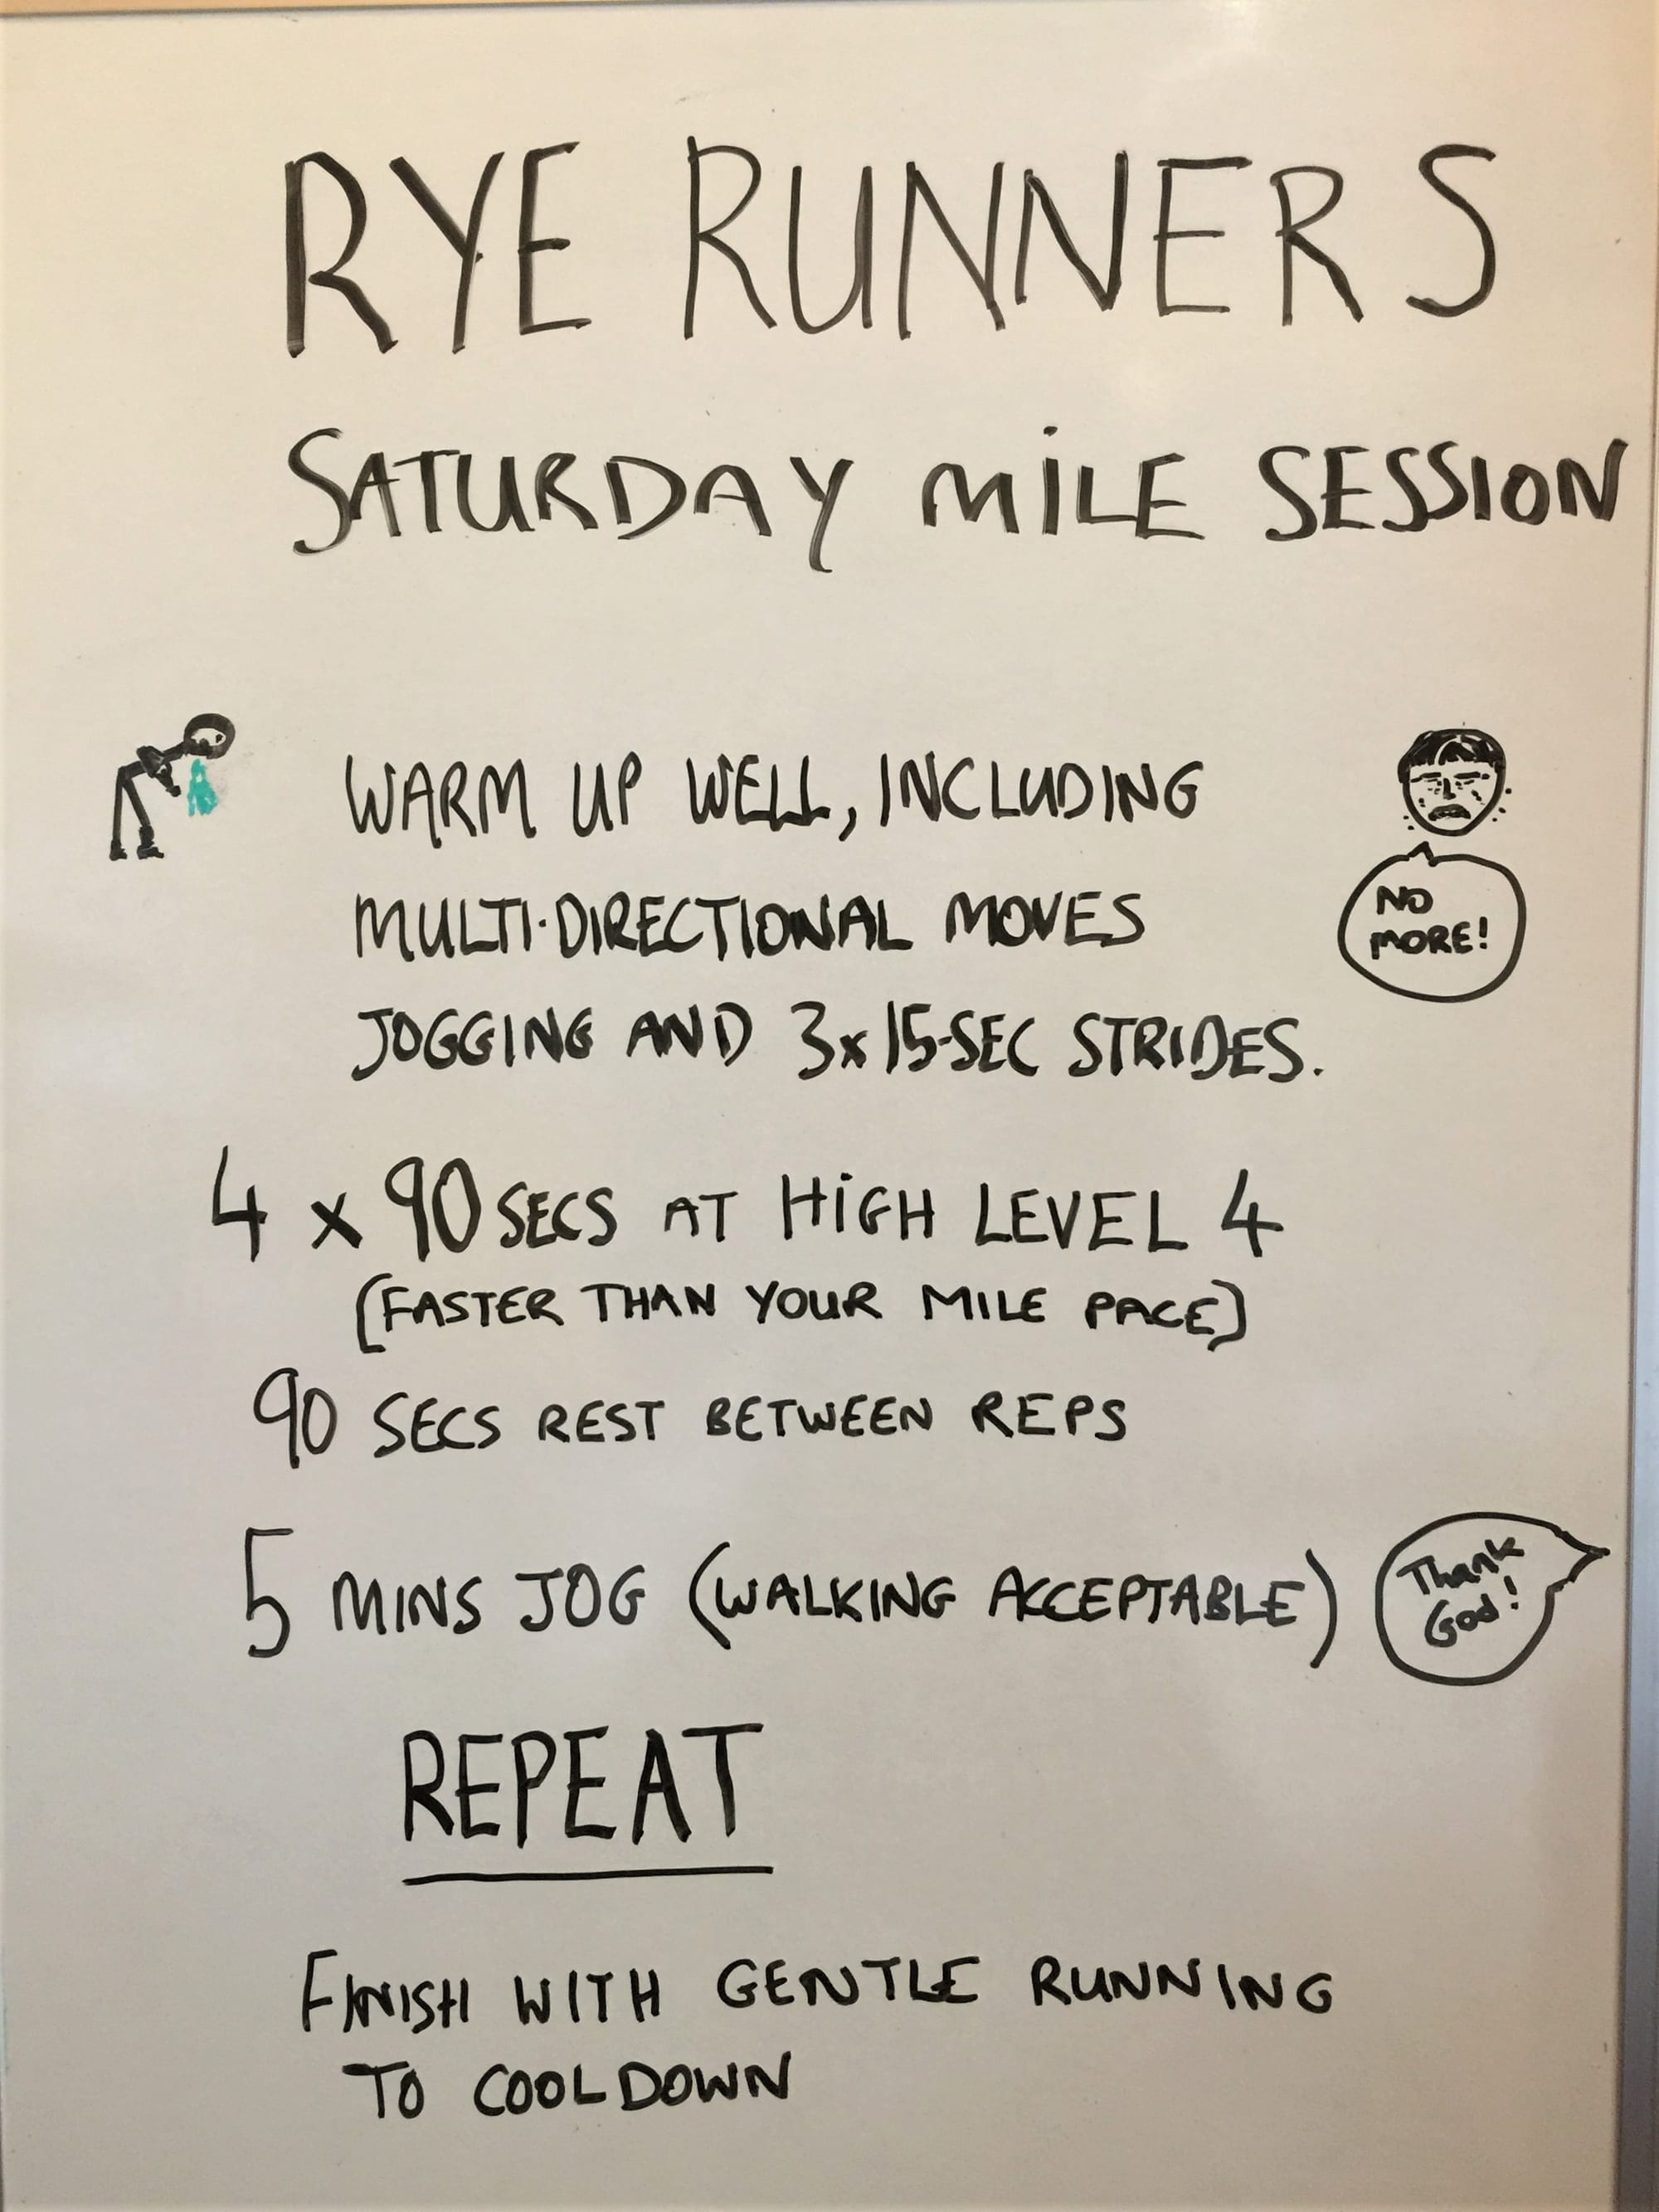 RYE RUNNERS
SATURDAY MILE SESSION
WARM UP WELL, INCLUDING
MULTI-DIRECTIONAL MOVES
JOGGING AND 3x15-SEC STRIDES.
NO
MORE!
4 x 90 SECS AT HIGH LEVEL 4
(FASTER THAN YOUR MILE PACE)
90 SECS REST BETWEEN REPS
5 MINS JOG (WALKING ACCEPTABLE)
Thank
God!
REPEAT
FINISH WITH GENTLE RUNNING
TO COOLDOWN